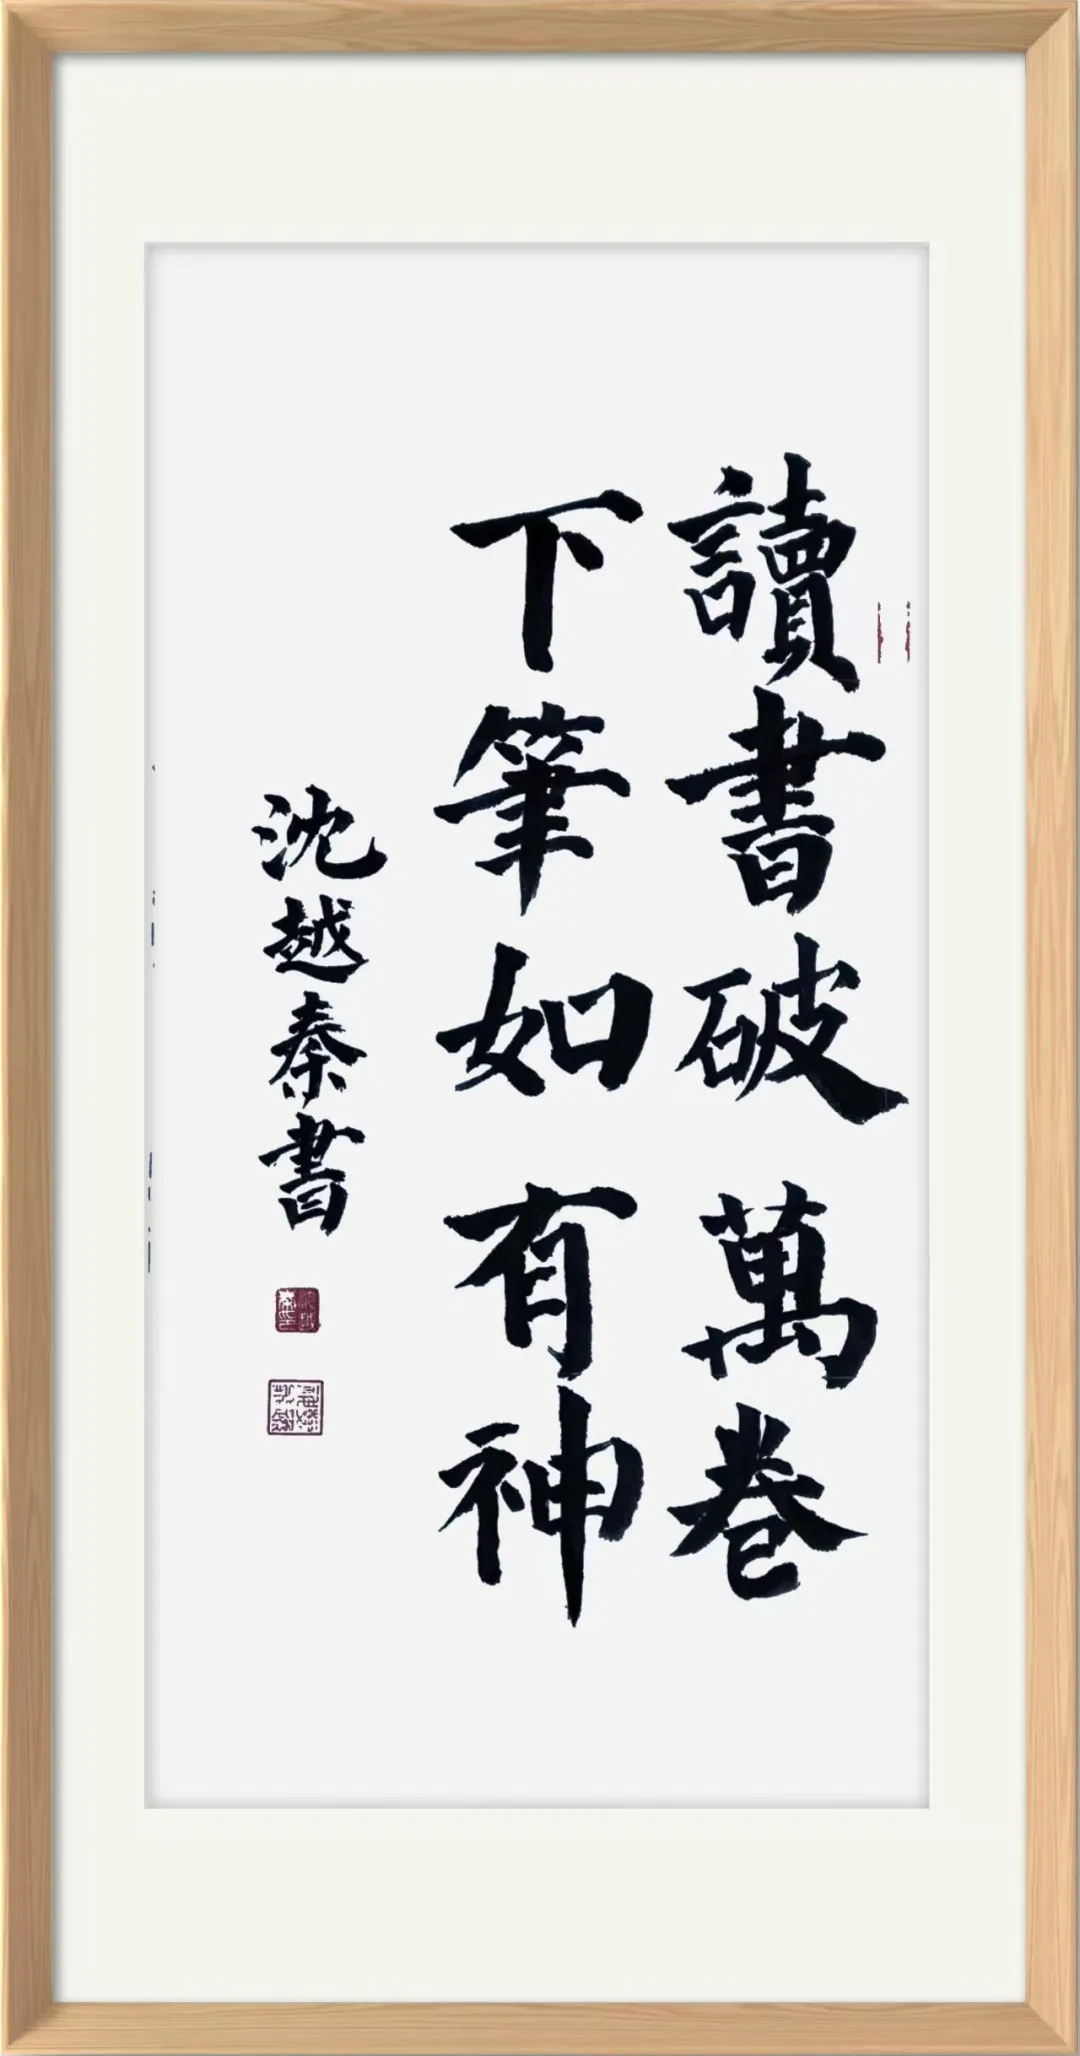 讀書破萬卷
下筆如有神
沈越秦書